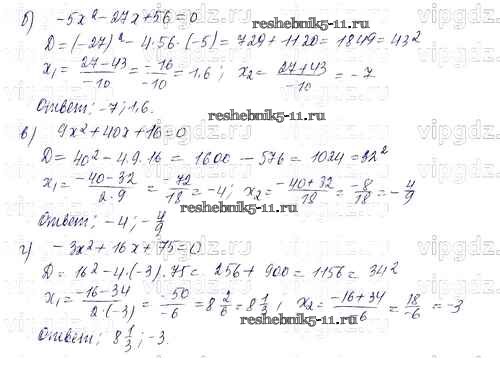 б) -5x² - 27x + 56 = 0
D = (-27)² - 4·56·(-5) = 729 + 1120 = 1849 = 43²
x₁ = (27-43)/-10 = -16/-10 = 1,6; x₂ = (27+43)/-10 = -7
Ответ: -7; 1,6.
в) 9x² + 40x + 16 = 0
D = 40² - 4·9·16 = 1600 - 576 = 1024 = 32²
x₁ = (-40-32)/(2·9) = -72/18 = -4; x₂ = (-40+32)/18 = -8/18 = -4/9
Ответ: -4; -4/9
г) -3x² + 16x + 75 = 0
D = 16² - 4·(-3)·75 = 256 + 900 = 1156 = 34²
x₁ = (-16-34)/(2·(-3)) = -50/-6 = 8 2/6 = 8 1/3; x₂ = (-16+34)/-6 = 18/-6 = -3
Ответ: 8 1/3; -3.
reshebnik5-11.ru
reshebnik5-11.ru
reshebnik5-11.ru
reshebnik5-11.ru
vipgdz.ru
vipgdz.ru
vipgdz.ru